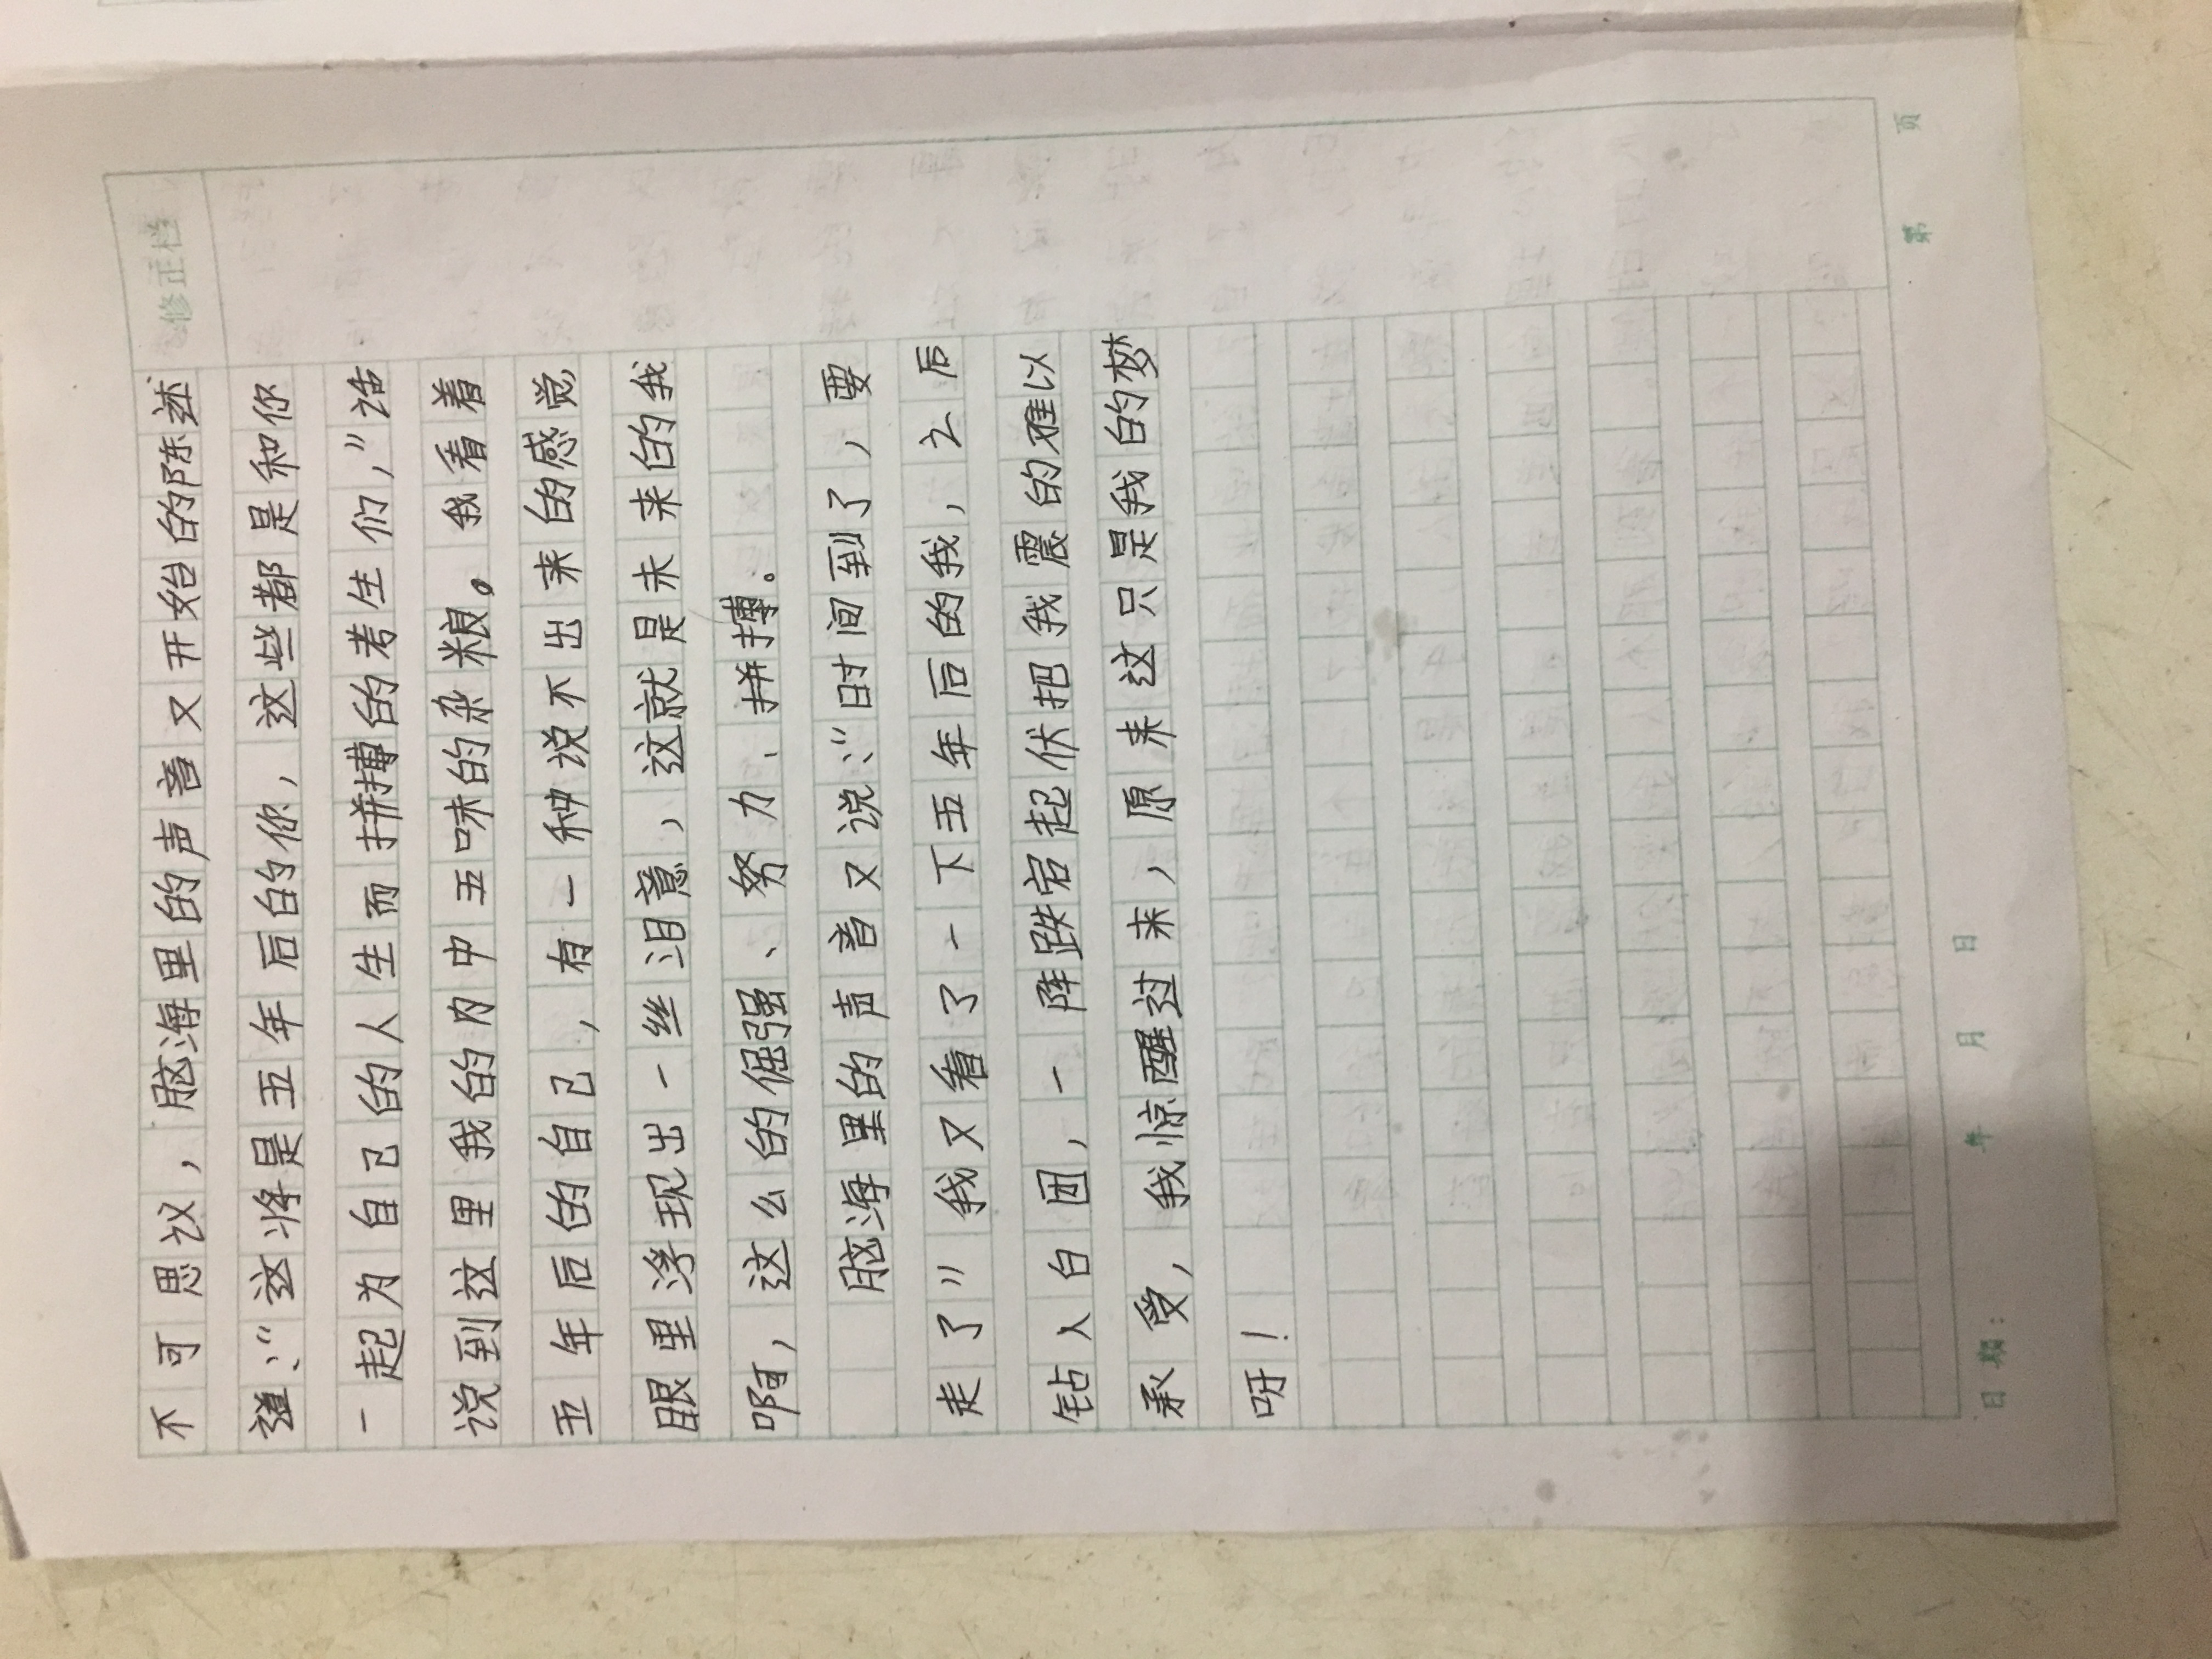 修正栏
不可思议，脑海里的声音又开始的陈述
道：“这将是五年后的你，这些都是和你
一起为自己的人生而拼搏的考生们，”话
说到这里我的内中五味的杂粮。我看着
五年后的自己，有一种说不出来的感觉
眼里浮现出一丝泪意，这就是未来的我
啊，这么的倔强、努力、拼搏。
脑海里的声音又说：“时间到了，要
走了”我又看了一下五年后的我，之后
钻入白圈，一阵跌宕起伏把我震的难以
承受，我惊醒过来，原来这只是我的梦
呀！
日期： 年 月 日 第 页